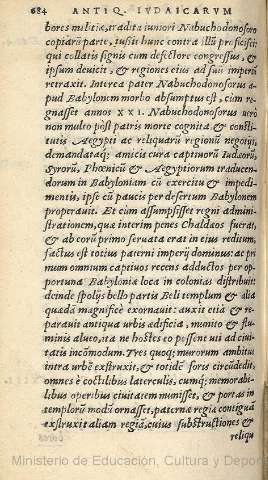 684 ANTIQ. IVDAICARVM
bores militiæ, tradita iuniori Nabuchodonosoro
copiarū parte, iussit hunc contra illū proficisci:
qui collatis signis cum defectore congressus, &
ipsum deuicit, & regiones eius ad suū imperiū
retraxit. Interea pater Nabuchodonosorus a-
pud Babylonem morbo absumptus est, cùm re-
gnasset annos XXI. Nabuchodonosorus verò
non multo pòst patris morte cognita & consti-
tutis Aegypti ac reliquarū regionū negotijs,
demandataq; amicis cura captiuorū Iudæorū,
Syrorū, Phœnicū & Aegyptiorum traducen-
dorum in Babyloniam cū exercitu & impedi-
mentis, ipse cū paucis per desertum Babylonem
properauit. Et cùm assumpsisset regni admini-
strationem, quæ interim penes Chaldæos fuerat,
& ab eorū primo seruata erat in eius reditum,
factus est totius paterni imperij dominus: ac pri
mum omnium captiuos recens adductos per op-
portuna Babyloniæ loca in colonias distribuit:
deinde spolijs bello partis Beli templum & alia
quædā magnificè exornauit: auxit etiā & re-
parauit antiqua vrbis ædificia, munito & flu-
minis alueo, ita ne hostes eo possent uti ad ciui-
tatis incōmodum. Tres quoq; murorum ambitus
intra vrbē exstruxit, & totidē foris circūdedit,
omnes è coctilibus laterculis. cumq; memorabi-
libus operibus ciuitatem munisset, & portas in
templorū modū ornasset, paternæ regiæ contiguā
exstruxit aliam regiā, cuius substructiones &
reliqu
Ministerio de Educación, Cultura y Depor